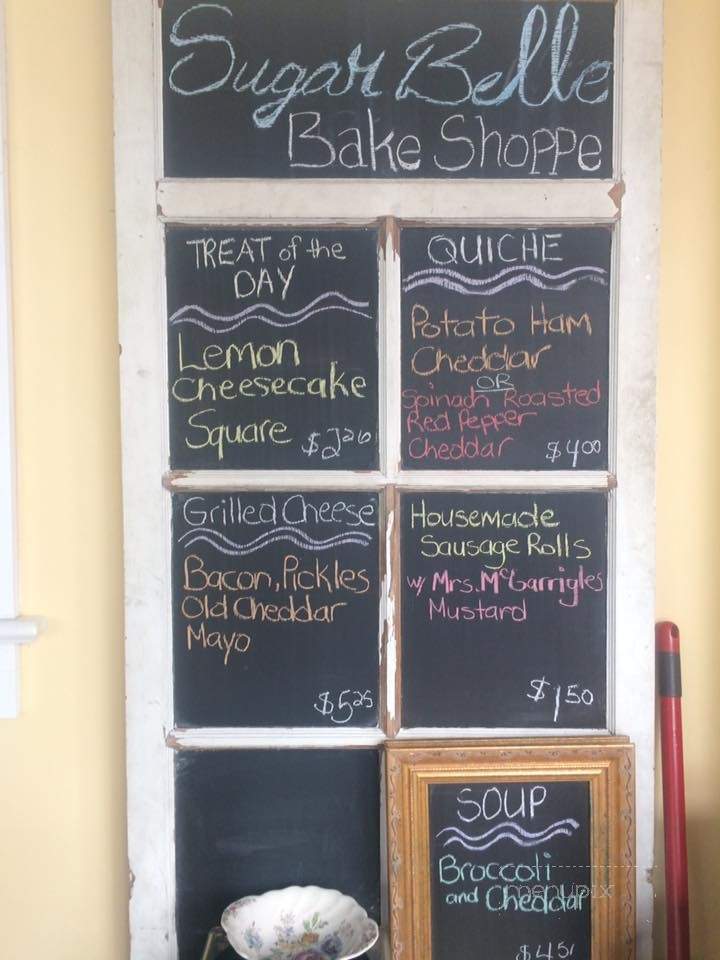 Sugar Belle
Bake Shoppe
TREAT of the
DAY
Lemon
Cheesecake
Square $2.26
QUICHE
Potato Ham
Cheddar
OR
Spinach Roasted
Red Pepper
Cheddar $4.00
Grilled Cheese
Bacon, Pickles
Old Cheddar
Mayo
$5.25
Housemade
Sausage Rolls
w/ Mrs. McGarrigles
Mustard
$1.50
SOUP
Broccoli
and Cheddar
menupix